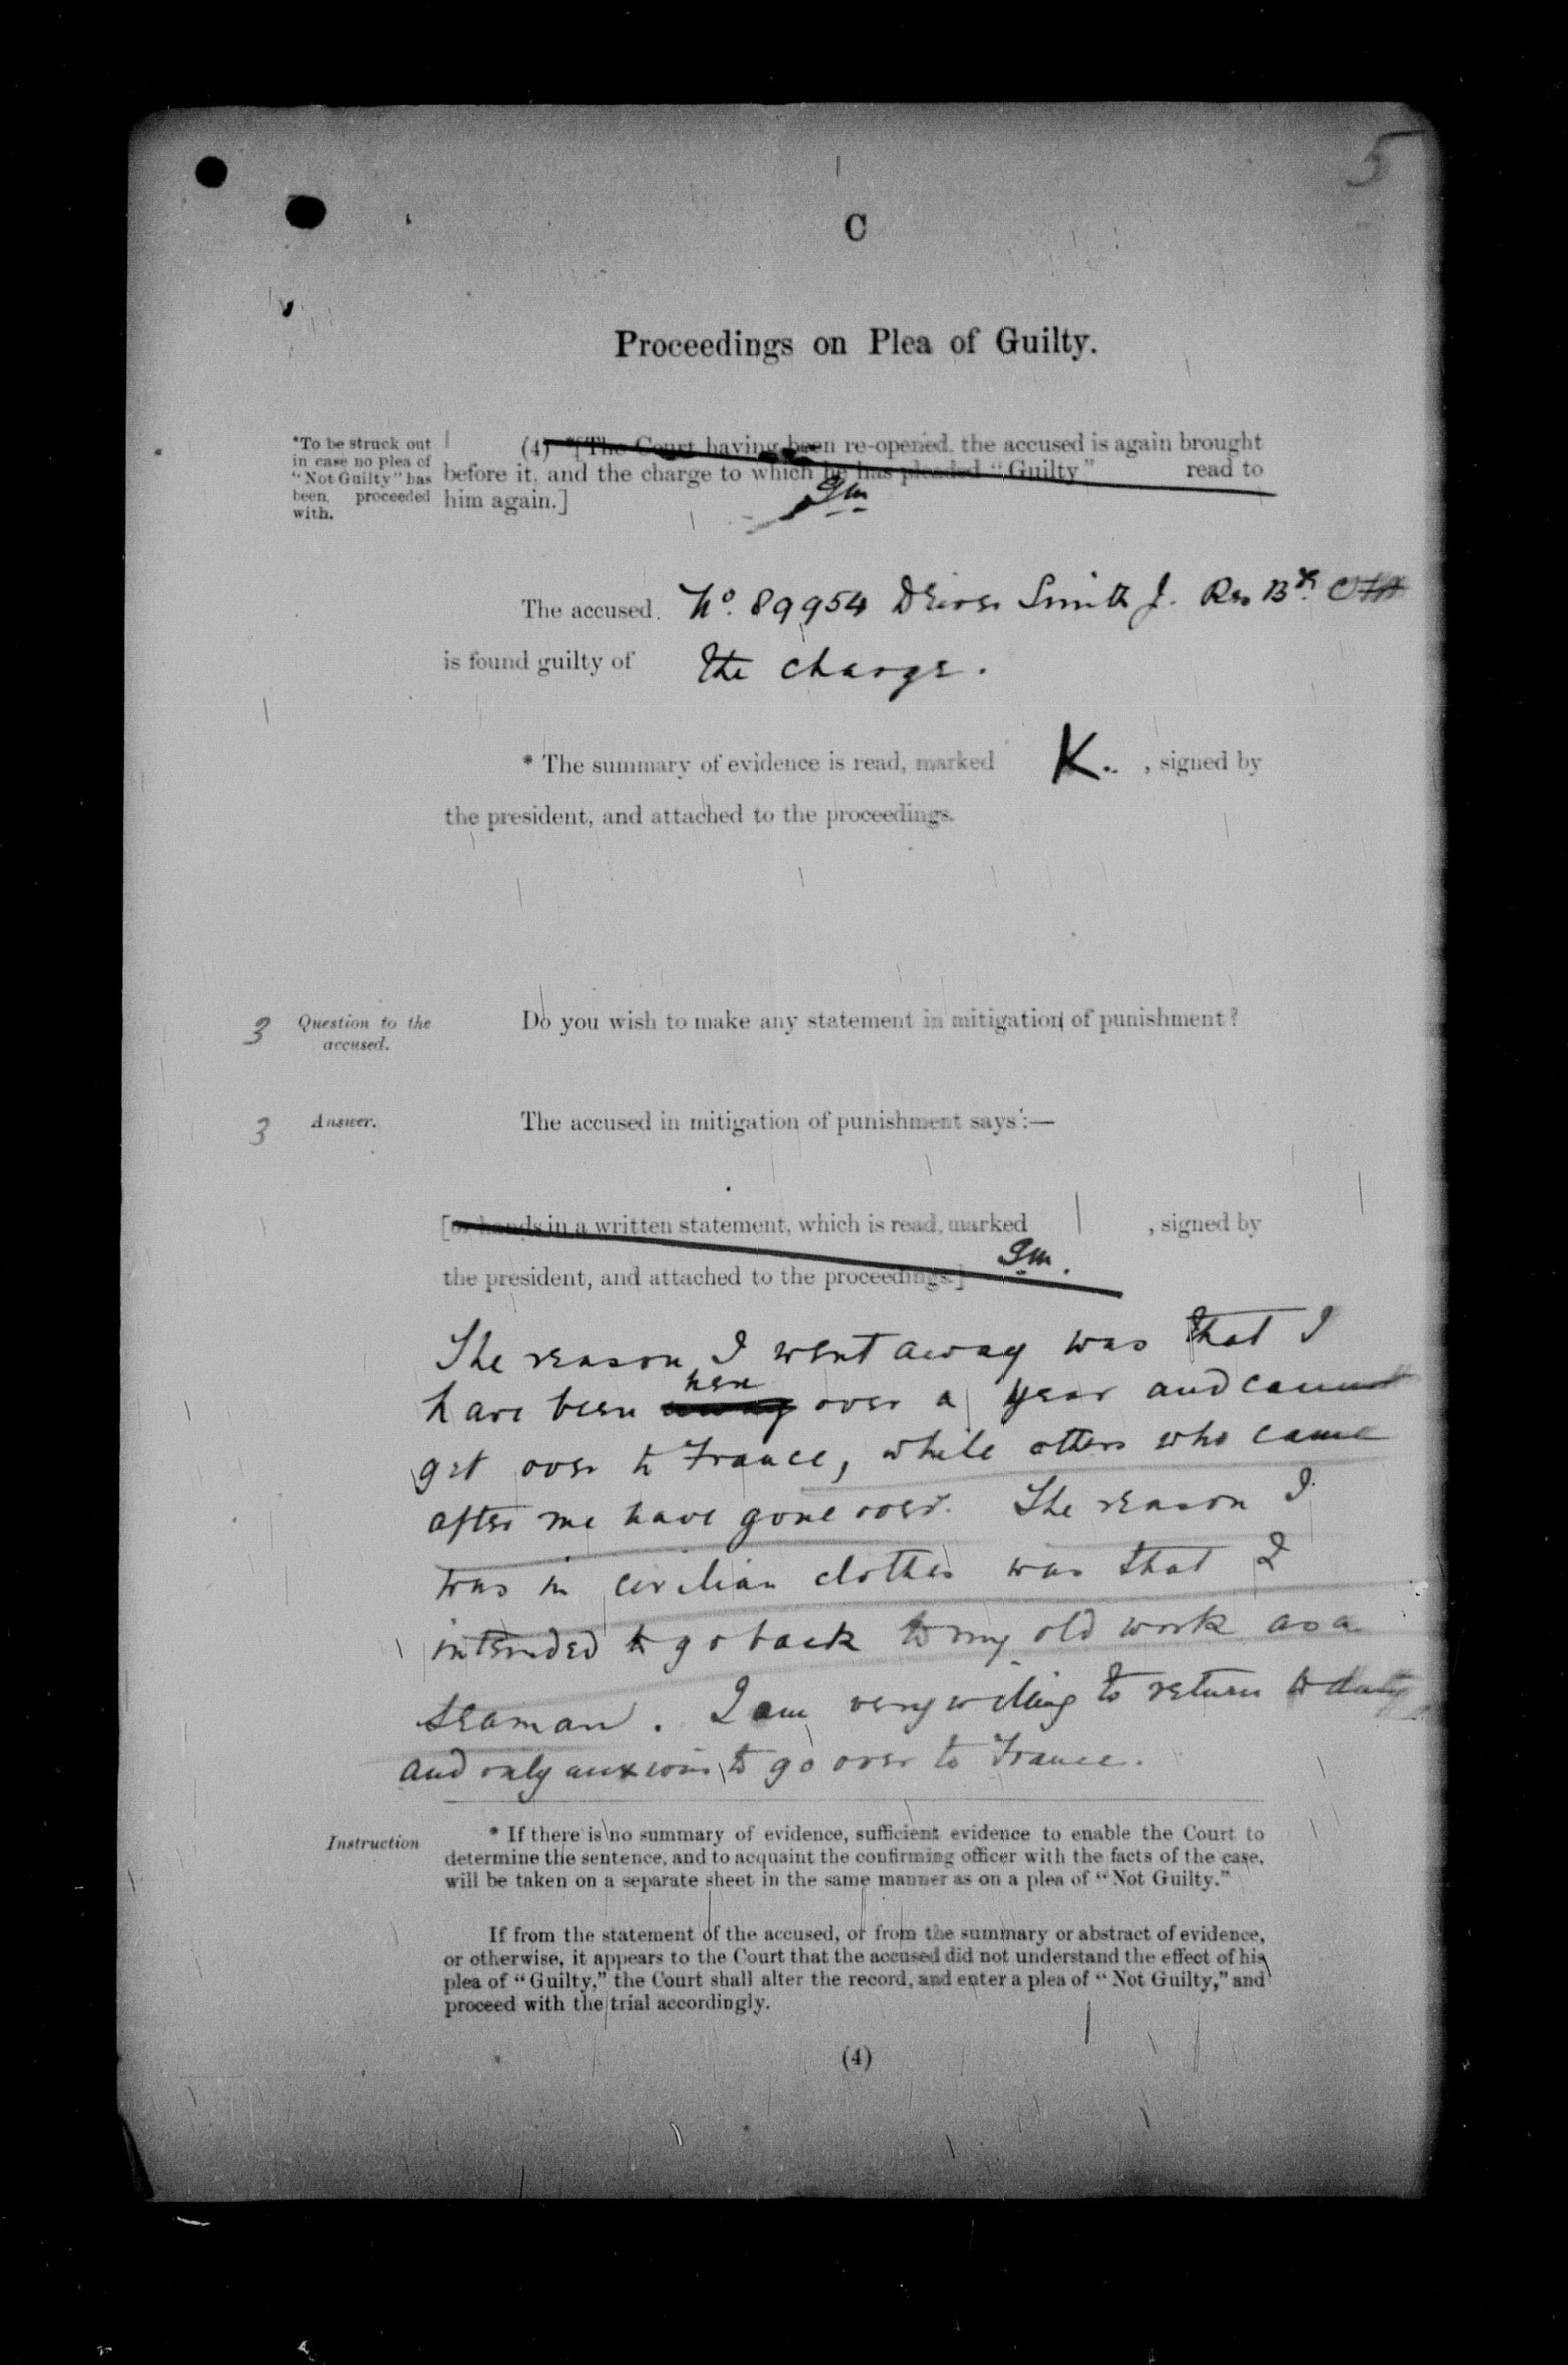 5
C
Proceedings on Plea of Guilty.
*To be struck out
in case no plea of
"Not Guilty" has
been proceeded
with.
(4) *[The Court having been re-opened, the accused is again brought
before it, and the charge to which he has pleaded "Guilty" read to
him again.]
The accused. No. 89954 Driver Smith J. Res By.
is found guilty of the charge.
* The summary of evidence is read, marked K. , signed by
the president, and attached to the proceedings.
3 Question to the
accused.
Do you wish to make any statement in mitigation of punishment?
3 Answer.
The accused in mitigation of punishment says:—
[or hands in a written statement, which is read, marked , signed by
the president, and attached to the proceedings.]
The reason I went away was that I
here
have been away over a year and cannot
get over to France, while others who came
after me have gone over. The reason I
was in civilian clothes was that I
intended to go back to my old work as a
seaman. I am very willing to return to duty
and only anxious to go over to France.
Instruction
* If there is no summary of evidence, sufficient evidence to enable the Court to
determine the sentence, and to acquaint the confirming officer with the facts of the case,
will be taken on a separate sheet in the same manner as on a plea of "Not Guilty."
If from the statement of the accused, or from the summary or abstract of evidence,
or otherwise, it appears to the Court that the accused did not understand the effect of his
plea of "Guilty," the Court shall alter the record, and enter a plea of "Not Guilty," and
proceed with the trial accordingly.
(4)